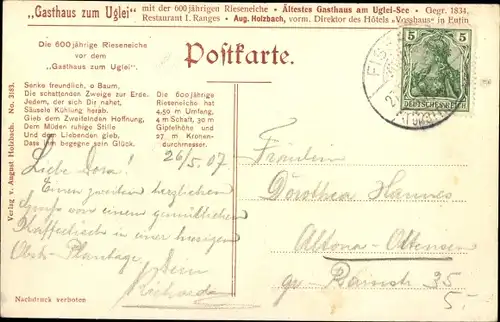 „Gasthaus zum Uglei" mit der 600jährigen Rieseneiche • Ältestes Gasthaus am Uglei-See • Gegr. 1834.
Restaurant I. Ranges • Aug. Holzbach, vorm. Direktor des Hôtels „Vosshaus" in Eutin
Die 600jährige Rieseneiche
vor dem
„Gasthaus zum Uglei".
Postkarte.
Senke freundlich, o Baum,
Die schattenden Zweige zur Erde.
Jedem, der sich Dir nahet,
Säusele Kühlung herab.
Gieb dem Zweifelnden Hoffnung,
Dem Müden ruhige Stille
Und dem Liebenden gieb,
Dass ihm begegne sein Glück.
Die 600jährige
Rieseneiche hat
4,50 m Umfang,
4 m Schaft, 30 m
Gipfelhöhe und
27 m Kronen-
durchmesser.
Verlag v. August Holzbach. No. 3183.
5 5
DEUTSCHES REICH
26/5.07
Liebe Dora!
Einen zweiten herzlichen
Gruß von einem gemütlichen
Kaffeetisch in einer hiesigen
Obst-Plantage
Dein
Richard
Fräulein
Dorothea Hannes
Altona-Ottensen
gr. Rainstr 35
5.-
Nachdruck verboten